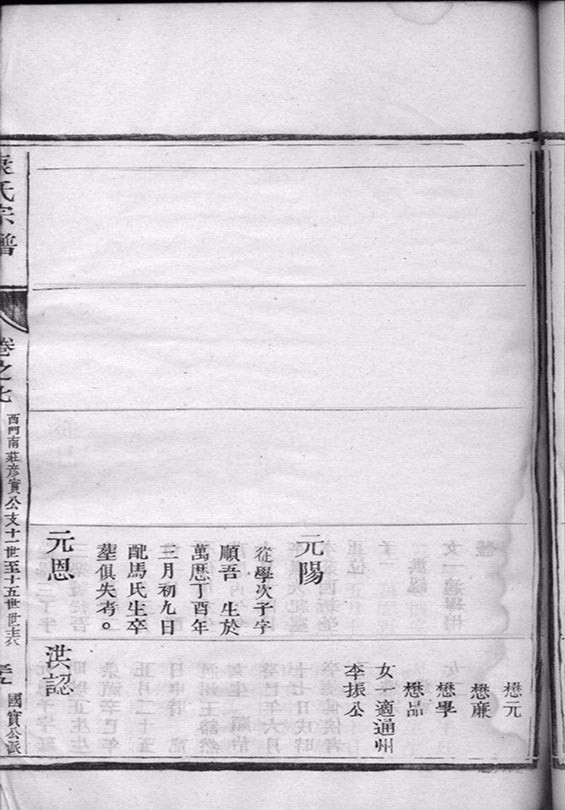 懋元
懋廉
懋學
懋品
女一適通州
李振公
元陽
從學次子字
順吾 生於
萬歷丁酉年
三月初九日
配馬氏生卒
塟俱失考。
元恩
洪認
氏宗譜
卷之七
西門南莊彦實公支十一世至十五世世表
國實公派